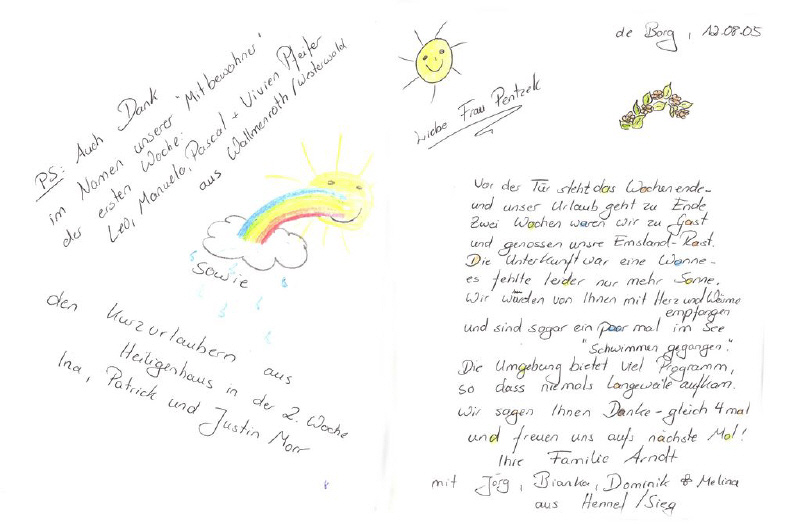 PS: Auch Dank
im Namen unserer "Mitbewohner"
der ersten Woche:
Leo, Manuela, Pascal + Vivien Pfeifer
aus Wallmenroth/Westerwald
sowie
den Kurzurlaubern aus
Heiligenhaus in der 2. Woche
Ina, Patrick und Justin Morr
de Borg, 12.08.05
Liebe Frau Pentzek
Vor der Tür steht das Wochenende-
und unser Urlaub geht zu Ende
Zwei Wochen waren wir zu Gast
und genossen unsre Emsland-Rast.
Die Unterkunft war eine Wonne-
es fehlte leider nur mehr Sonne.
Wir wurden von Ihnen mit Herz und Wärme
empfangen
und sind sogar ein paar mal im See
"Schwimmen gegangen".
Die Umgebung bietet viel Programm,
so dass niemals Langeweile aufkam.
Wir sagen Ihnen Danke-gleich 4 mal
und freuen uns aufs nächste Mal!
Ihre Familie Arndt
mit Jörg, Bianka, Dominik & Melina
aus Hennef/Sieg